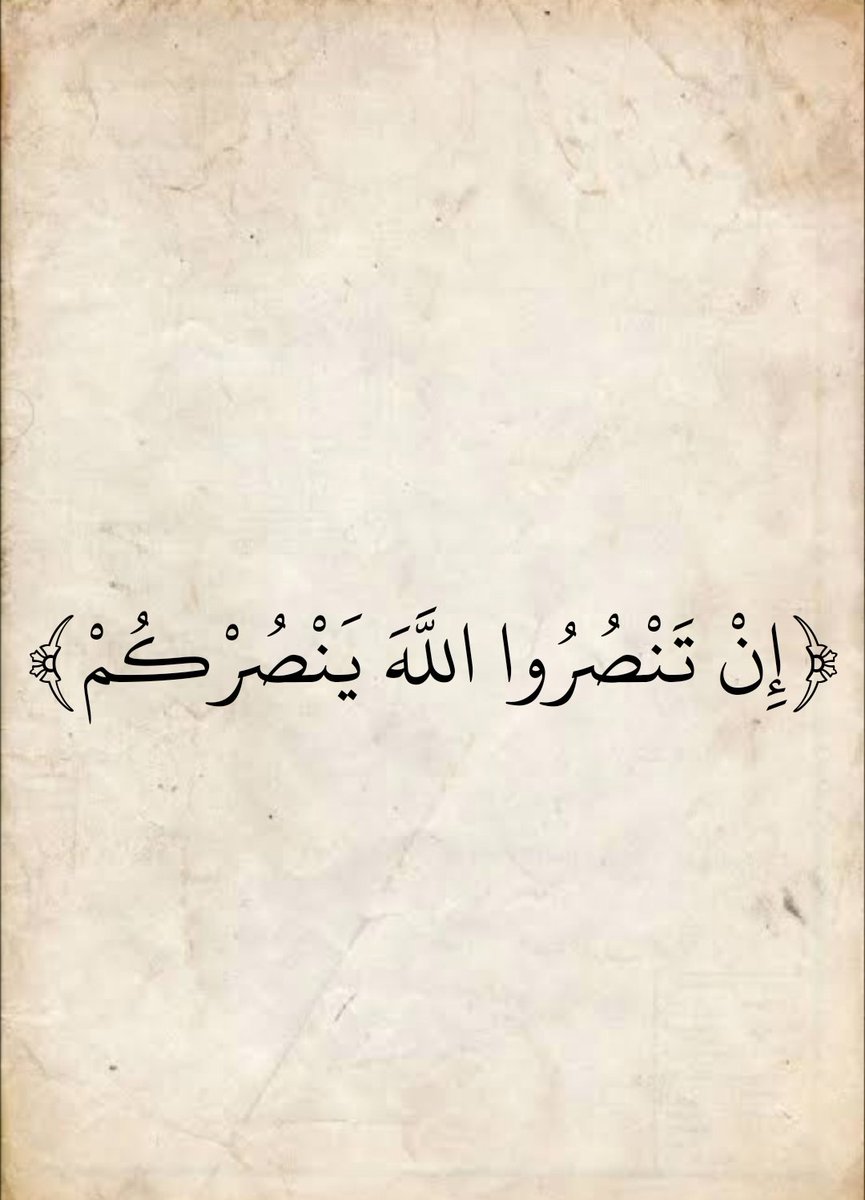 ﴿إِنْ تَنْصُرُوا اللَّهَ يَنْصُرْكُمْ﴾